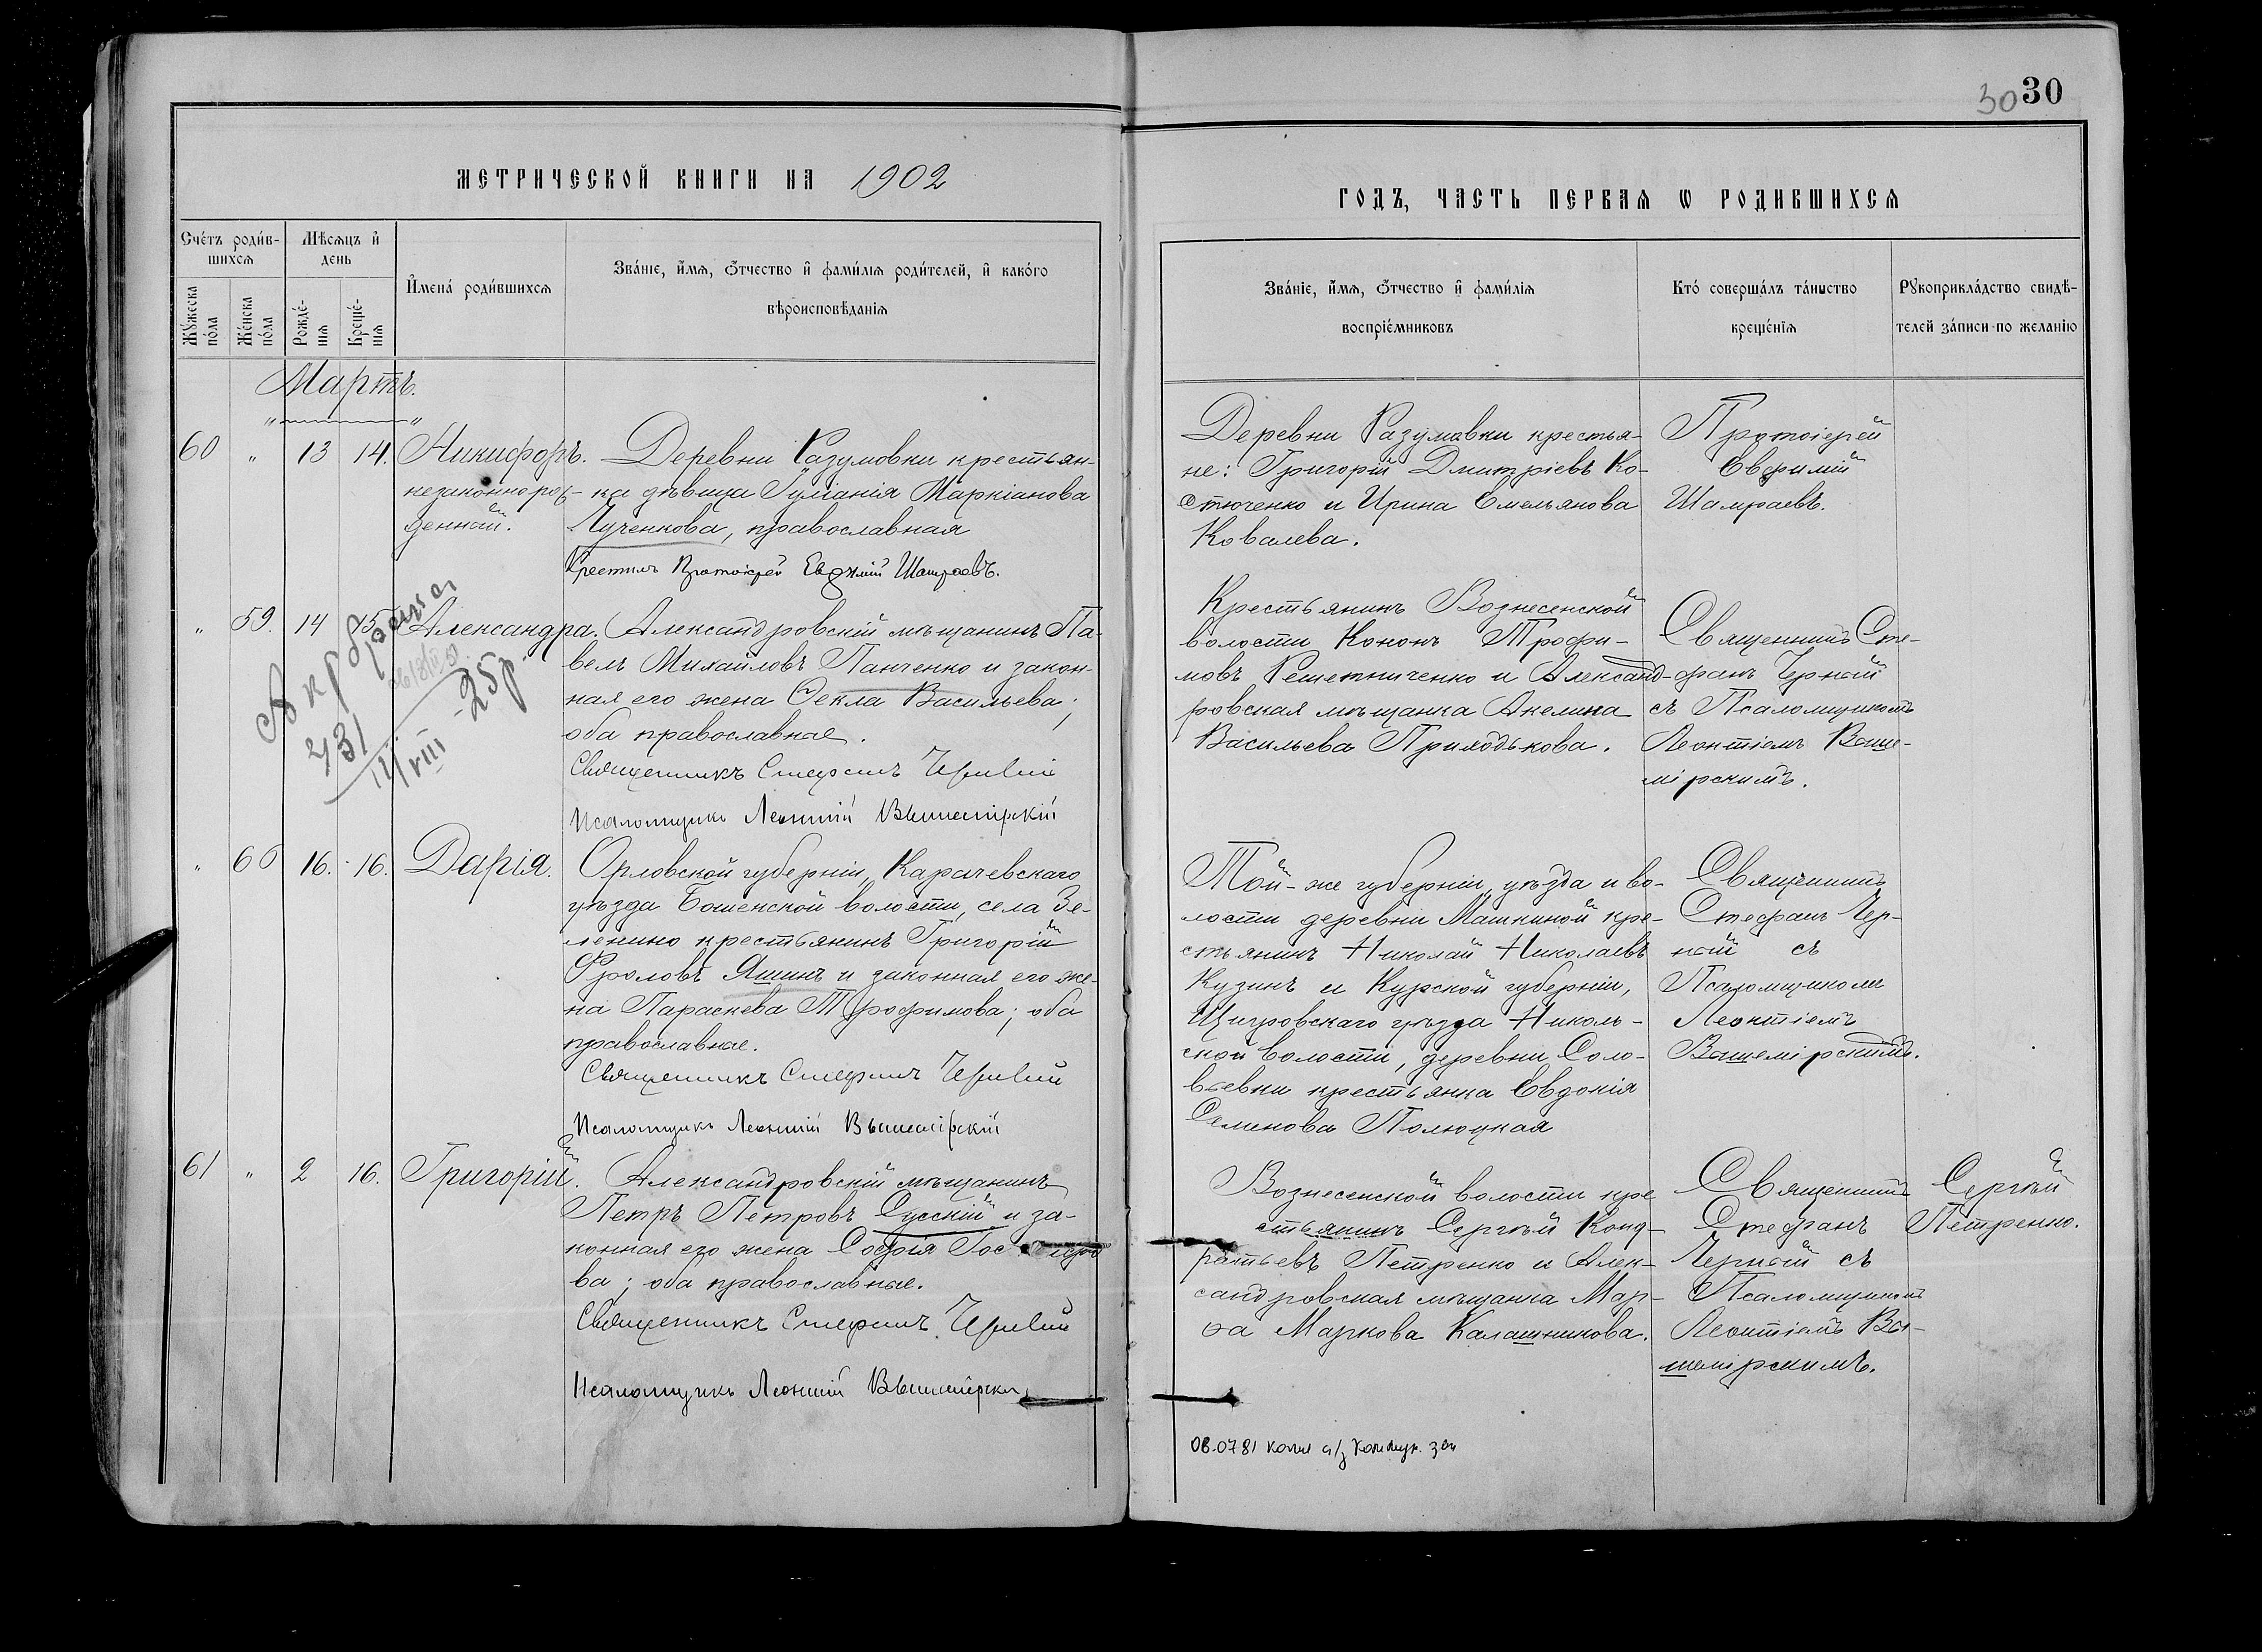 30 30
МЕТРИЧЕСКОЙ КНИГИ НА 1902
ГОДЪ, ЧАСТЬ ПЕРВАЯ Ѡ РОДИВШИХСЯ
Счётъ роди́в-
шихся
Мѣсяцъ и҆
день
Мꙋ́жеска
по́ла
Же́нска
по́ла
Рожде́-
нія
Креще́-
нія
И҆мена́ роди́вшихся
Зва́ніе, и҆́мя, ѻ҆́тчество и҆ фами́лія роди́телей, и҆ како́го
вѣроисповѣ́данія
Зва́ніе, и҆́мя, ѻ҆́тчество и҆ фами́лія
воспріе́мниковъ
Кто̀ соверша́лъ та́инство
креще́нія
Рꙋкоприкла́дство свидѣ́-
телей за́писи по жела́нію
Мартъ.
60 " 13 14. Никифоръ.
незаконнорож-
денный.
Деревни Разумовки крестьян-
ка дѣвица Іуліанія Маркіанова
Лученкова, православная
Крестилъ Протоіерей Евѳимій Шамраевъ.
Деревни Разумовки крестья-
не: Григорій Дмитріевъ Ко-
стюченко и Ирина Емельянова
Ковалева.
Протоіерей
Евѳимій
Шамраевъ.
" 59. 14 15 Александра.
Александровскій мѣщанинъ Па-
велъ Михайловъ Панченко и закон-
ная его жена Ѳекла Васильева;
оба православные.
Священникъ Стефанъ Черный
Псаломщикъ Леонтій Вышемірскій
25р.
Крестьянинъ Вознесенской
волости Кононъ Трофи-
мовъ Решетниченко и Александ-
ровская мѣщанка Акелина
Васильева Приходькова.
Священникъ Сте-
фанъ Черный
съ Псаломщикомъ
Леонтіемъ Выше-
мірскимъ.
" 60 16. 16. Дарія.
Орловской губерніи, Карачевскаго
уѣзда Бошенской волости, села Зе-
ленино крестьянинъ Григорій
Фроловъ Яшинъ и законная его же-
на Параскева Трофимова; оба
православные.
Священникъ Стефанъ Черный
Псаломщикъ Леонтій Вышемірскій
Той-же губерніи, уѣзда и во-
лости деревни Машкиной кре-
стьянинъ Николай Николаевъ
Кузинъ и Курской губерніи,
Щигровскаго уѣзда Николь-
ской волости, деревни Соло-
вьевки крестьянка Евдокія
Семенова Полюцкая
Священникъ
Стефанъ Чер-
ный съ
Псаломщикомъ
Леонтіемъ
Вышемірскимъ.
61 " 2 16. Григорій.
Александровскій мѣщанинъ
Петръ Петровъ Сусскій и за-
конная его жена Софія
ва; оба православные.
Священникъ Стефанъ Черный
Псаломщикъ Леонтій Вышемірскі
Вознесенской волости кре
стьянинъ Сергѣй Конд-
ратьевъ Петренко и Алек-
сандровская мѣщанка Мар-
ѳа Маркова Калашникова.
Священникъ
Стефанъ
Черный съ
Псаломщикомъ
Леонтіемъ Вы-
шемірскимъ.
Сергѣй
Петренко.
08.0781 копия а/з